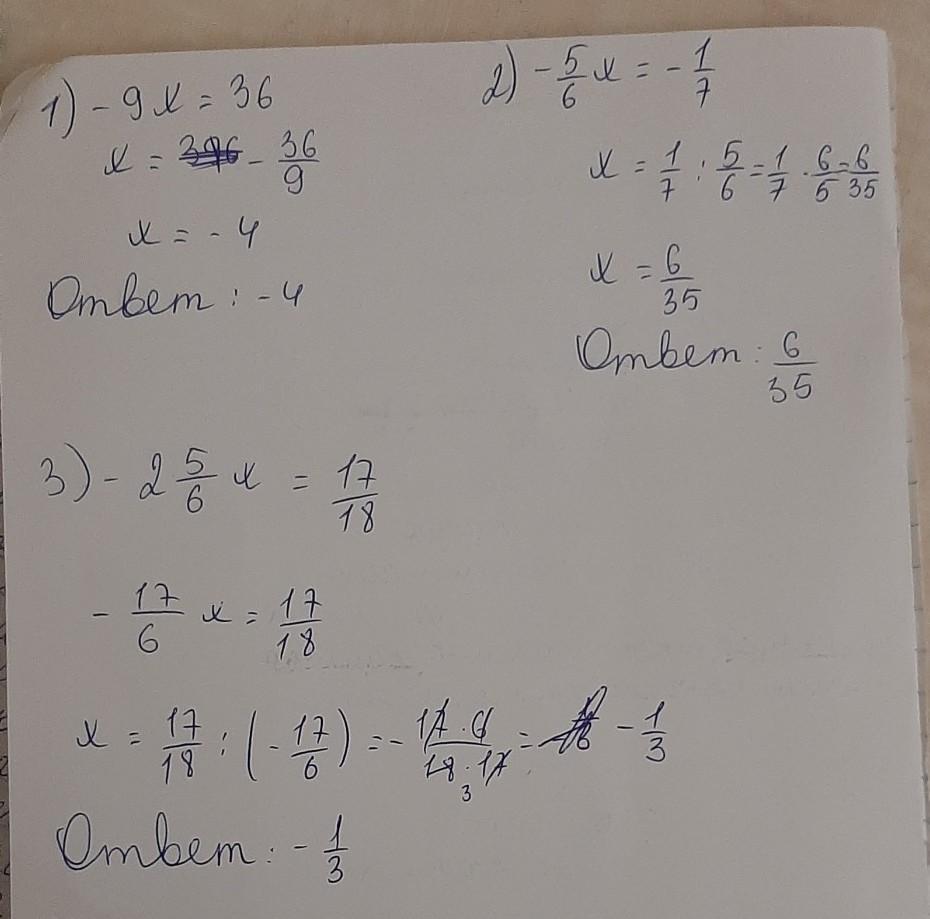 1) -9x = 36
x = - 36/9
x = - 4
Ответ : -4
2) - 5/6 x = - 1/7
x = 1/7 : 5/6 = 1/7 · 6/5 = 6/35
x = 6/35
Ответ : 6/35
3) - 2 5/6 x = 17/18
- 17/6 x = 17/18
x = 17/18 : (- 17/6) = - 17 · 6/18 · 17 = - 1/3
3
Ответ : - 1/3